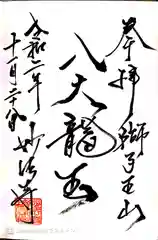 奉拝 獅子王山
八大龍王
令和二年
十一月二十八日
妙法寺